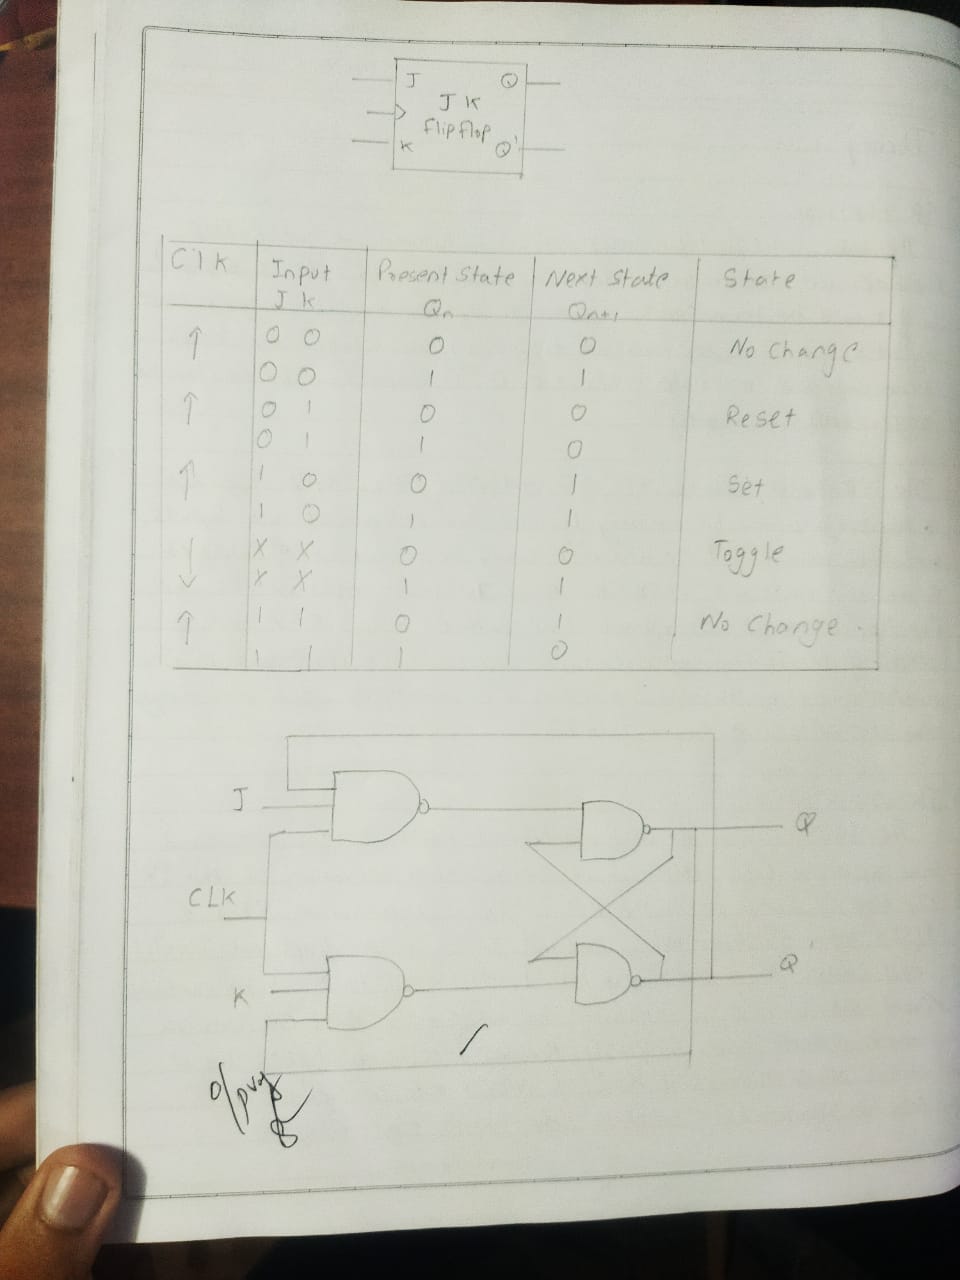 J Q
J K
flip flop
K Q'
Clk Input Present State Next State State
J K Qn Qn+1
↑ 0 0 0 0 No Change
0 0 1 1
↑ 0 1 0 0 Reset
0 1 1 0
↑ 1 0 0 1 Set
1 0 1 1
↓ X X 0 0 Toggle
X X 1 1
↑ 1 1 0 1 No Change
1 1 1 0
J
Q
CLK
Q'
K